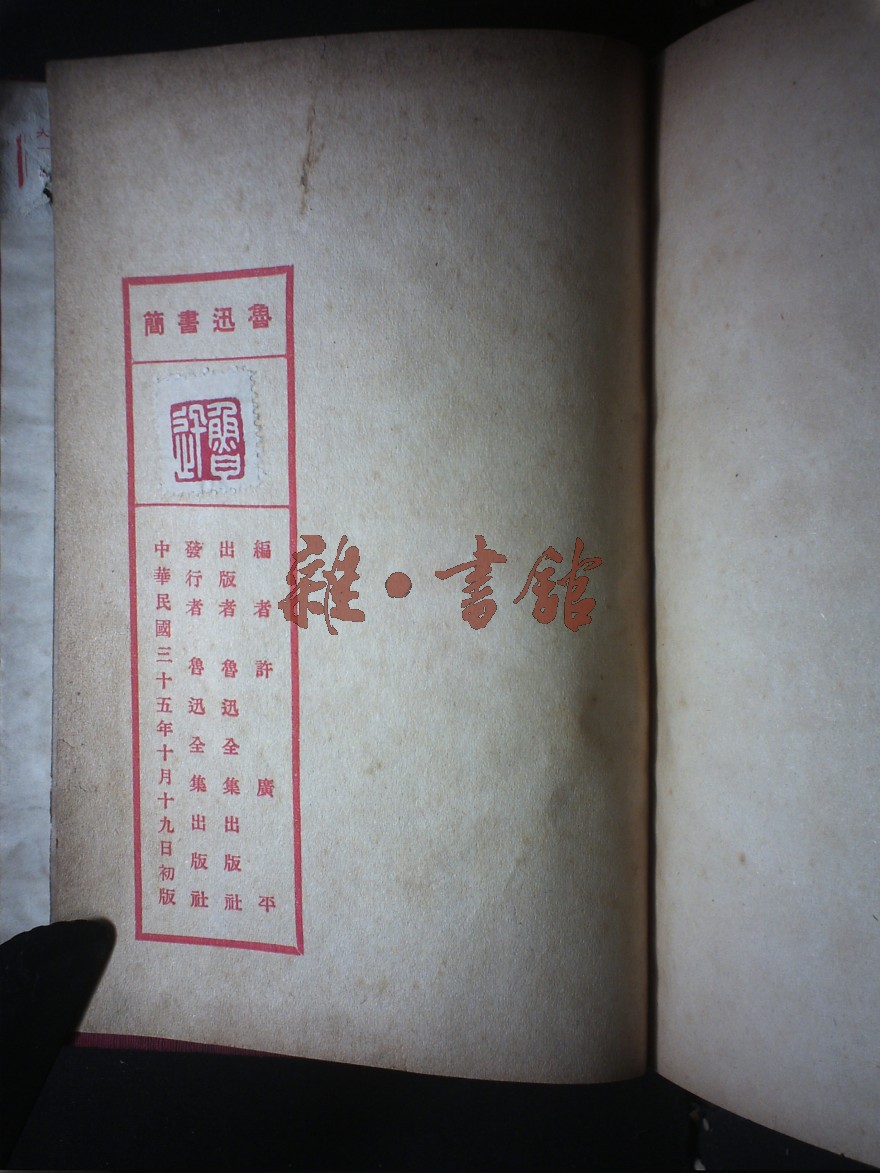 魯迅書簡
魯迅
編者 許廣平
出版者 魯迅全集出版社
發行者 魯迅全集出版社
中華民國三十五年十月十九日初版
雜·書館